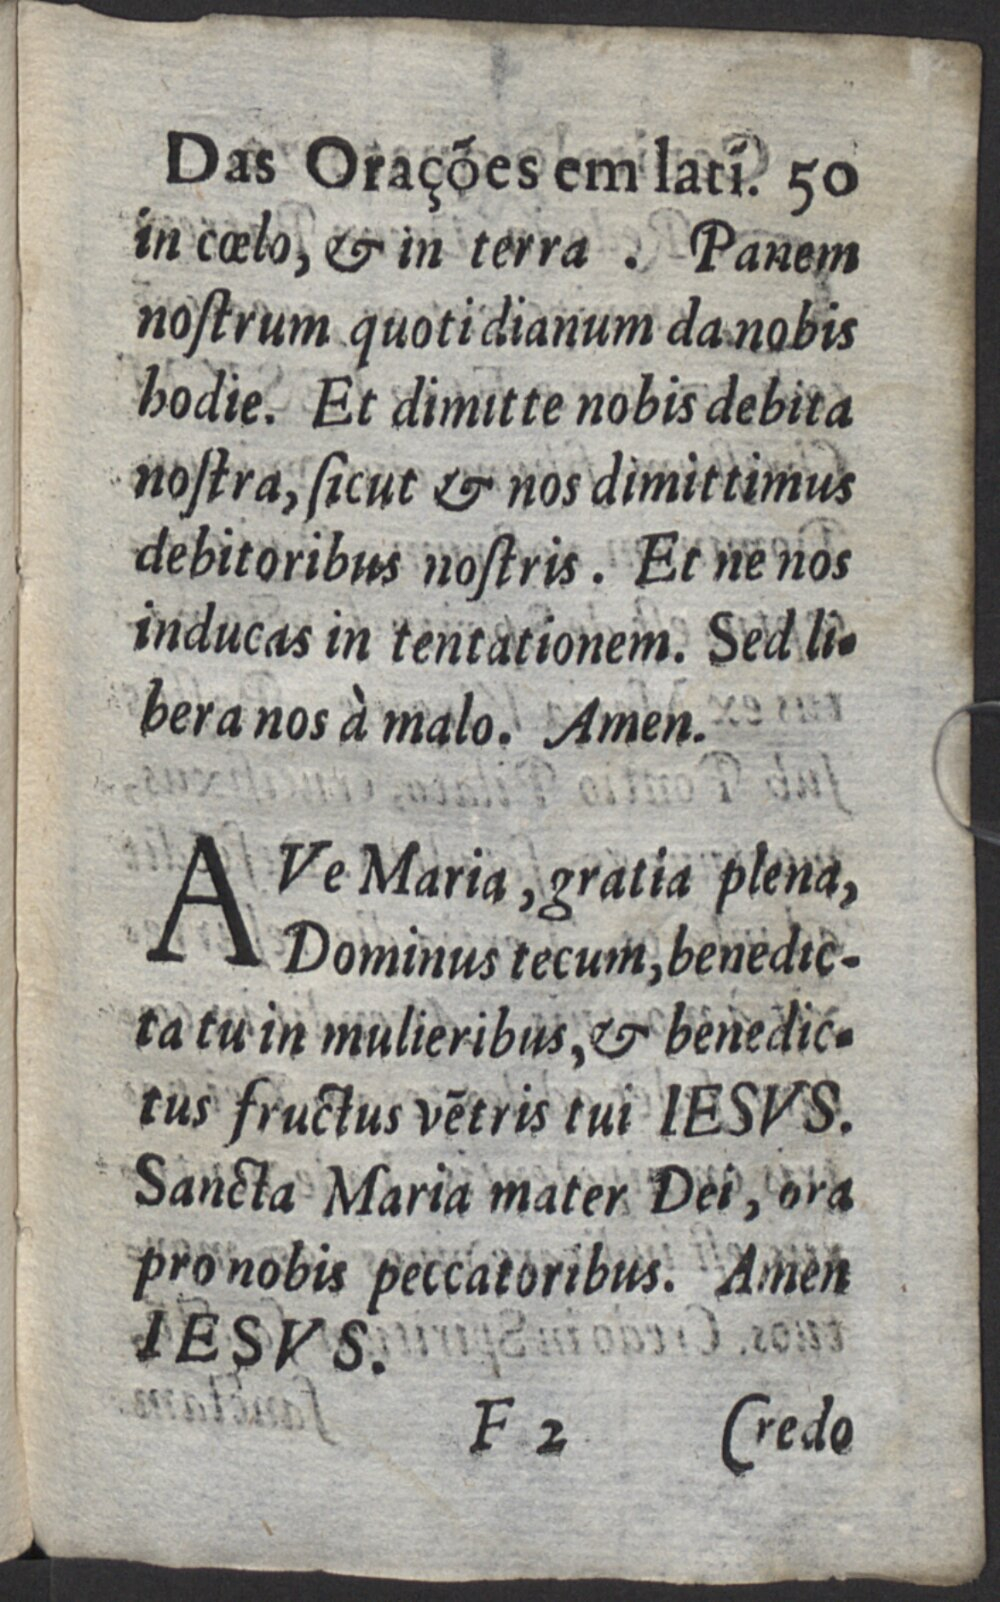 Das Orações em latĩ. 50
in cœlo, & in terra . Panem
noſtrum quotidianum da nobis
hodie. Et dimitte nobis debita
noſtra, ſicut & nos dimittimus
debitoribus noſtris . Et ne nos
inducas in tentationem. Sed li-
bera nos à malo. Amen.
AVe Maria, gratia plena,
Dominus tecum, benedic-
ta tu in mulieribus, & benedic-
tus fructus vẽtris tui IESVS.
Sancta Maria mater Dei, ora
pro nobis peccatoribus. Amen
IESVS.
F 2 Credo